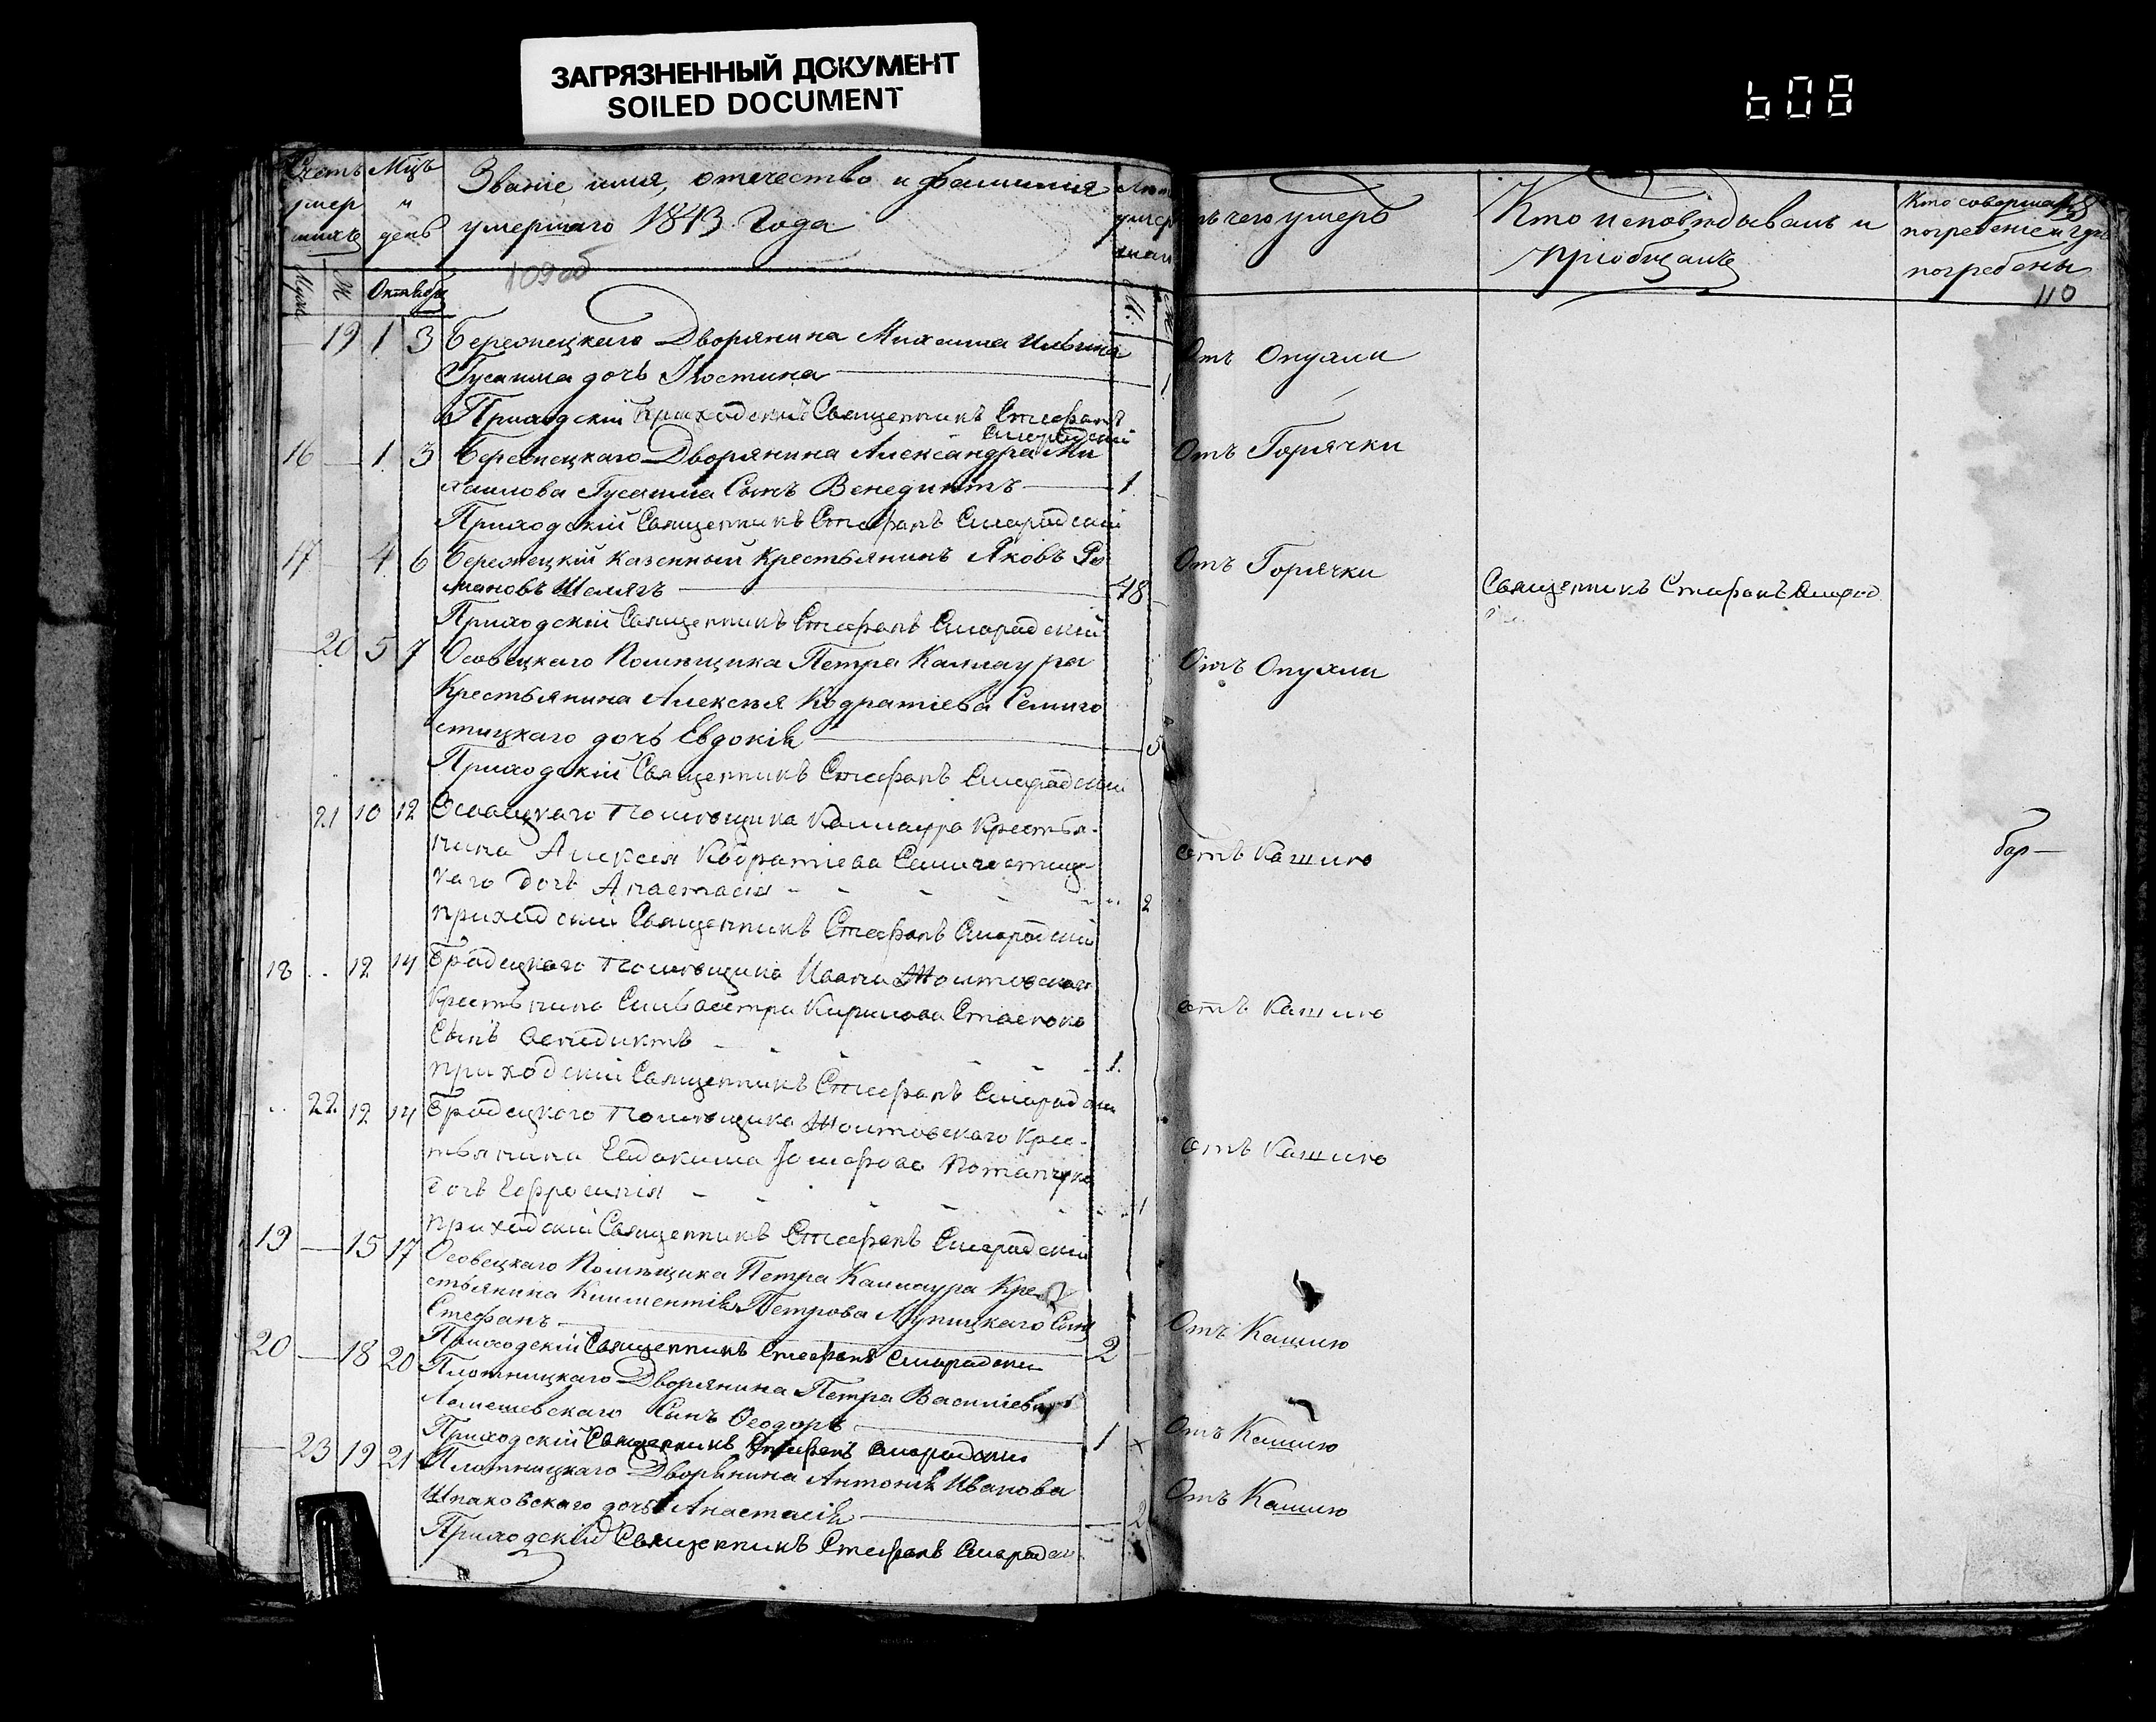 ЗАГРЯЗНЕННЫЙ ДОКУМЕНТ
SOILED DOCUMENT
608
Счетъ умер шихъ
Мцъ и день
Званіе имя, отечество и фамилія
умершаго 1843 Года
109 об
отъ чего умеръ
Кто исповѣдывалъ и
пріобщалъ
Кто совершалъ
погребеніе и гдѣ
погребены
110
Муж
Ж
Октябрь
М.
19 1 3 Бережецкаго Дворянина Михаила Ильина
Отъ Опухли
дочь Іюстина 1
Приходскій Священникъ Стефанъ
Смарадскій
16 1 3 Бережецкаго Дворянина Александра Ми
Отъ Горячки
хаилова сынъ Венедиктъ 1
Приходскій Священникъ Стефанъ Смарадскій
17 4 6 Бережецкій казенный крестьянинъ Яковъ Ро
Отъ Горячки
мановъ Шелягъ 48
Священникъ Стефанъ Смарад
Приходскій Священникъ Стефанъ Смарадскій
20 5 7 Осовецкаго Помѣщика Петра Каллаура
Отъ Опухли
Крестьянина Алексѣя Кодратіева Семиго
стицкаго дочь Евдокія 5
Приходскій Священникъ Стефанъ Смарадскій
21 10 12 Осовецкаго Помѣщика Каллаура Крестья-
нина Алексѣя Кодратіева Семигостиц-
отъ Кашлю
каго дочь Анастасія 2
приходскій Священникъ Стефанъ Смарадскій
18 12 14 Брадецкаго Помѣщика Ивана Жолтовскаго
Крестьянина Сильвестра Кирилова
отъ Кашлю
Сынъ Венидиктъ 1.
приходскій Священникъ Стефанъ Смарадскій
22. 12 14 Брадецкаго Помѣщика Жолтовскаго Крес-
тьянина Евдокима Потапчука
отъ Кашлю
дочь Ефросинія 1
приходскій Священникъ Стефанъ Смарадскій
19 15 17 Осовецкаго Помѣщика Петра Каллаура Кре
стьянина Климентія Петрова Лупицкаго Сынъ
Отъ Кашлю
Стефанъ 2
Приходскій Священникъ Стефанъ Смарадскій
20 18 20 Плотницкаго Дворянина Петра Василіева
сынъ Ѳеодоръ 1
Отъ Кашлю
Приходскій Священникъ Стефанъ Смарадскій
23 19 21 Плотницкаго Дворянина Антонія Иванова
Отъ Кашлю
Шпаковскаго дочь Анастасія 2
Приходскій Священникъ Стефанъ Смарадск